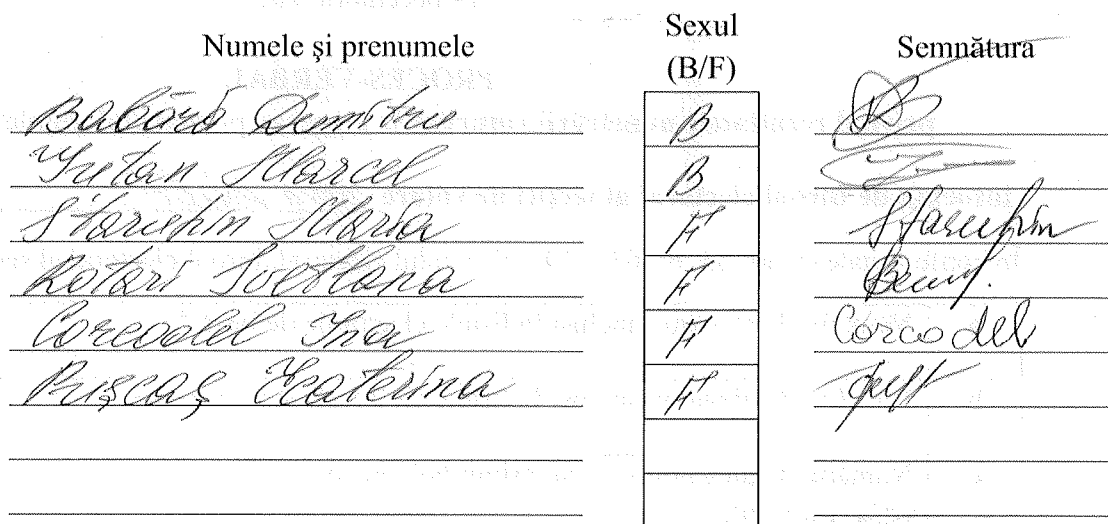 Numele şi prenumele Sexul (B/F) Semnătura
Babără Dumitru B
Guțan Marcel B
Staruhin Maria F Staruhin
Rotari Svetlana F
Corcodel Ina F Corcodel
Pușcaș Ecaterina F